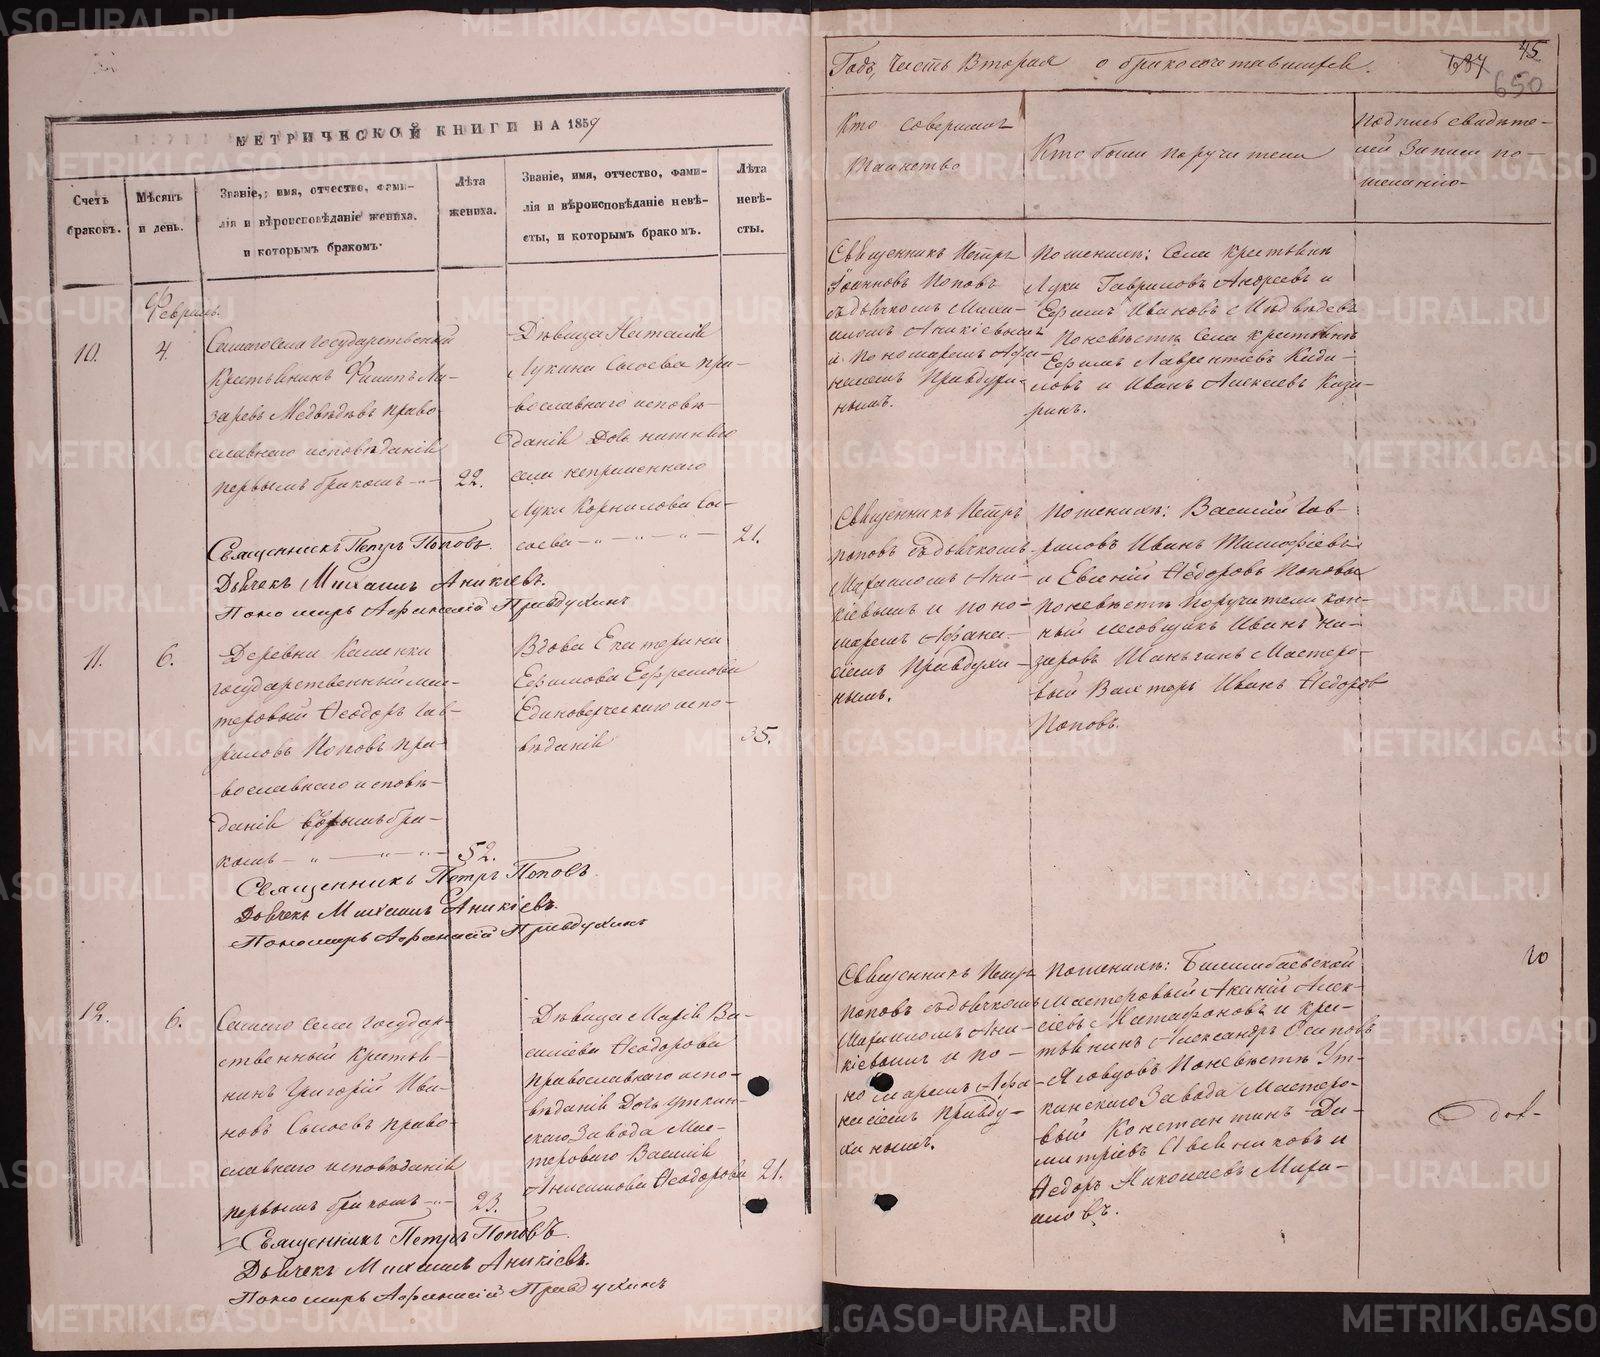 МЕТРИЧЕСКОЙ КНИГИ НА 1859
Счетъ
браковъ.
Мѣсяцъ
и день.
Званіе, имя, отчество, фами-
лія и вѣроисповѣданіе жениха.
и которымъ бракомъ.
Лѣта
жениха.
Званіе, имя, отчество, фами-
лія и вѣроисповѣданіе невѣ-
сты, и которымъ бракомъ.
Лѣта
невѣ-
сты.
Февраль.
10.
4.
Самаго села государственный
крестьянинъ Филипъ Ла-
заревъ Медвѣдевъ право-
славнаго исповѣданія
первымъ бракомъ
22.
Дѣвица Наталія
Лукина Сысоева пра-
вославнаго исповѣ-
данія Дочь
села непременнаго
Луки Корнилова Сы-
соева
21.
Священникъ Петръ Поповъ.
Дьячекъ Михаилъ Аникіевъ.
Пономарь Афанасій Правдухинъ
11.
6.
Деревни Каменки
государственный мас-
теровый Ѳеодоръ Гав-
риловъ Поповъ пра-
вославнаго исповѣ-
данія вторымъ бра-
комъ
52.
Вдова Екатерина
Ефимова Ефремова
Единоверческаго испо-
вѣданія
35.
Священникъ Петръ Поповъ.
Дьячекъ Михаилъ Аникіевъ.
Пономарь Афанасій Правдухинъ
12.
6.
Самаго села государ-
ственный крестья-
нинъ Григорій Ива-
новъ Сысоевъ право-
славнаго исповѣданія
первымъ бракомъ
23.
Дѣвица Марія Ва-
силіева Ѳеодорова
православнаго испо-
вѣданія Дочь Уткин-
скаго Завода Мас-
тероваго Василія
Анисимова Ѳеодорова
21.
Священникъ Петръ Поповъ.
Дьячекъ Михаилъ Аникіевъ.
Пономарь Афанасій Правдухинъ
Годъ, Часть Вторая о бракосочетавшихся.
45
687
650
Кто совершалъ
таинство
Кто были поручители
Подпись свидѣте-
лей записи по-
желанію
Священникъ Петръ
Іоанновъ Поповъ
съ дьячкомъ Миха-
иломъ Аникіевымъ
и пономаремъ Афа-
насіемъ Правдухи-
нымъ.
По женихѣ: Села крестьяне
Лука Гавриловъ Андреевъ и
Ефимъ Ивановъ Медвѣдевъ
По невѣстѣ Села крестьяне
Ефимъ Лаврентіевъ
и Иванъ Алексеевъ Каза-
ринъ.
Священникъ Петръ
Поповъ съ дьячкомъ
Михаиломъ Ани-
кіевымъ и поно-
маремъ Афана-
сіемъ Правдухи-
нымъ.
По женихѣ: Василій Гав-
риловъ Иванъ Тимофѣевъ
и Евгеній Ѳедоровъ Поповы
По невѣстѣ поручители кон-
ный лесовщикъ Иванъ На-
заровъ Шаньгинъ Мастеро-
вый Вахтеръ Иванъ Ѳедоровъ
Поповъ.
Священникъ Петръ
Поповъ съ дьячкомъ
Михаиломъ Ани-
кіевымъ и по-
номаремъ Афа-
насіемъ Правду-
хинымъ.
По женихѣ: Билимбаевской
Мастеровый Ананій Алек-
сіевъ и кре-
стьянинъ Александръ Осиповъ
Яговцовъ По невѣстѣ Ут-
кинскаго Завода Мастеро-
вый Константинъ Ди-
митріевъ и
Ѳедоръ Николаевъ
20
METRIKI.GASO-URAL.RU